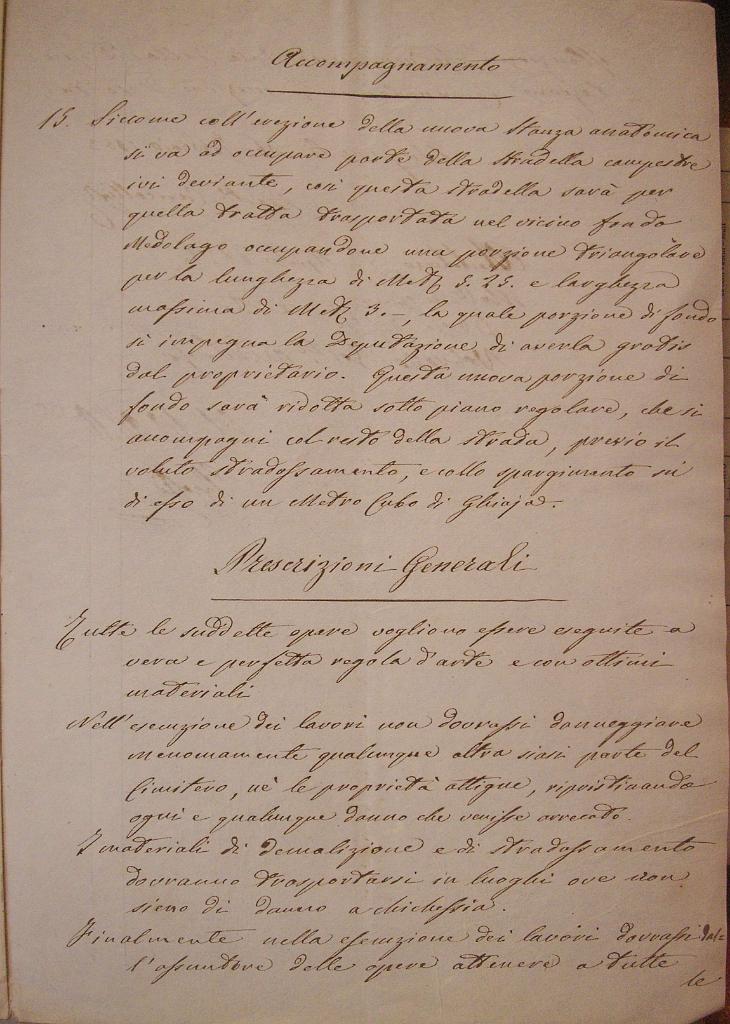 Accompagnamento
15. Siccome coll'erezione della nuova Stanza anatomica
si va ad occupare parte della stradella campestre
ivi deviante, così questa stradella sarà per
quella tratta trasportata nel vicino fondo
Medolago occupandone una porzione triangolare
per la lunghezza di Met. 5.25. e larghezza
massima di Met. 3.-, la quale porzione di fondo
si impegna la Deputazione di averla gratis
dal proprietario. Questa nuova porzione di
fondo sarà ridotta sotto piano regolare, che si
acompagni col resto della strada, previo il
voluto stradossamento, e collo spargimento su
di esso di un Metro Cubo di Ghiaja.
Prescrizioni Generali
Tutte le suddette opere vogliono essere eseguite a
vera e perfetta regola d'arte e con ottimi
materiali
Nell'esecuzione dei lavori non dovrassi danneggiare
menomamente qualunque altra siasi parte del
Cimitero, nè le proprietà attigue, ripristinando
ogni e qualunque danno che venisse arrecato.
I materiali di demolizione e di stradossamento
dovranno trasportarsi in luoghi ove non
sieno di danno a chichessia.
Finalmente nella esecuzione dei lavori dovrassi dal=
l'assuntore delle opere attenere a tutte
le